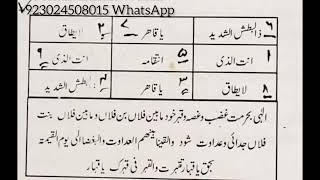 +923024508015 WhatsApp
۶ ذالبطش الشدید یا قاھر ۷ لایطاق ۲
۱ انت الذی ۵ انتقامہ انت الذی ۹
۸ لایطاق ۳ یا قاھر ۴ ذالبطش الشدید
الٰہی بحرمت غضب وغصہ وقہر خود مابین فلاں بن فلاں و مابین فلاں بنت
فلاں جدائی وعداوت شود والقینا بینھم العداوت والبغضا الی یوم القیمۃ
بحق یا قہار تقہرت والقہر فی قہرک یا قہار